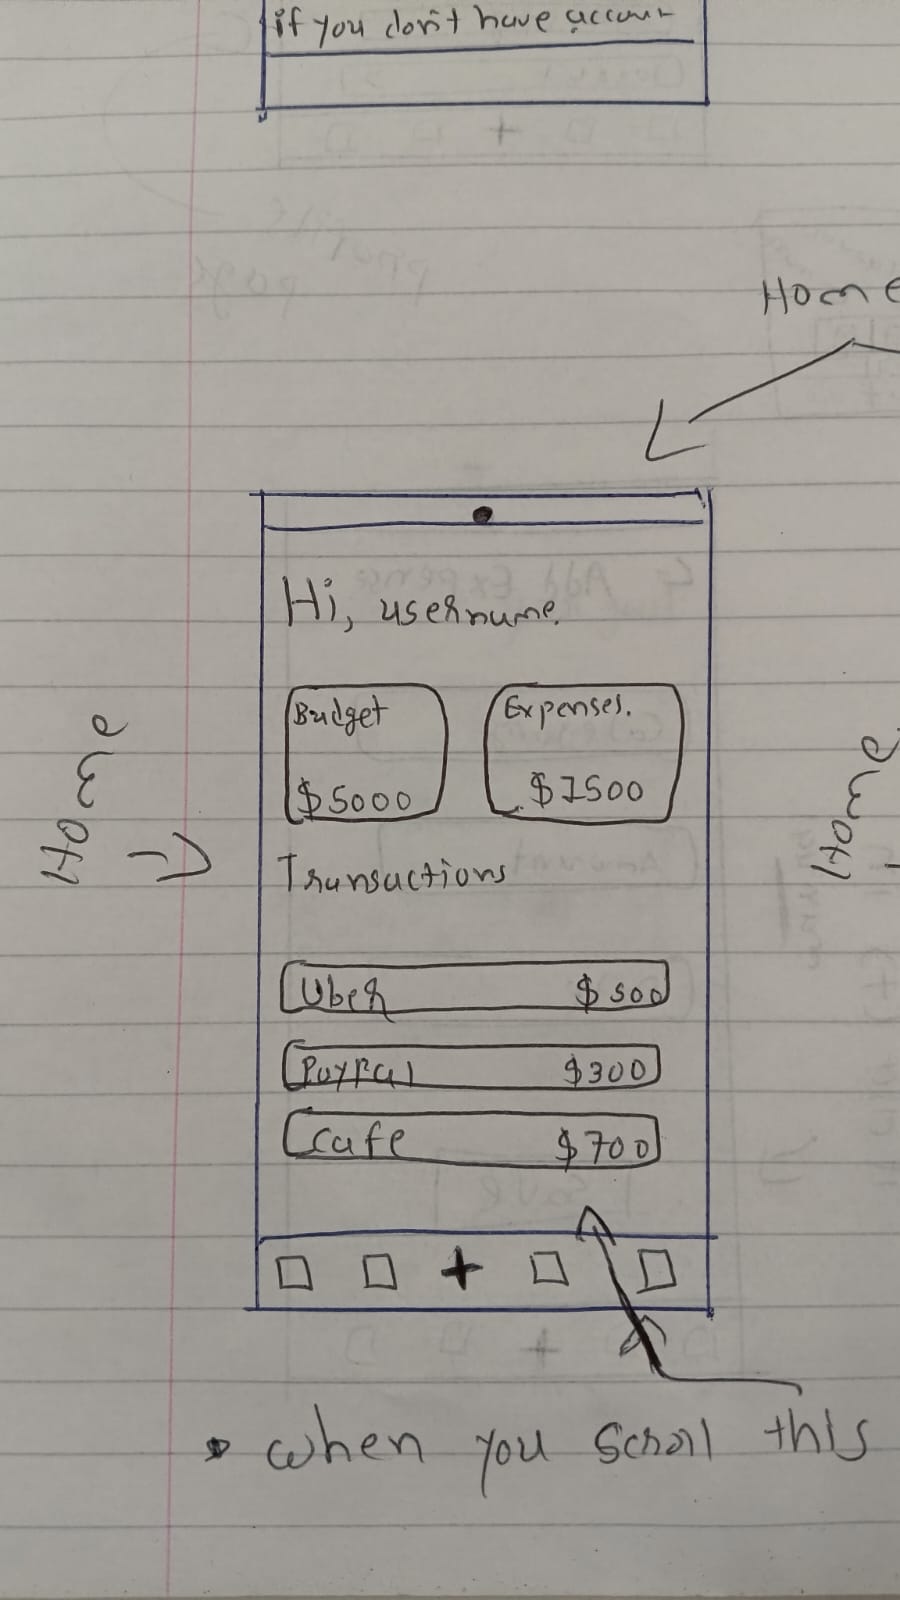 if you don't have accoun
Home
Hi, username.
Budget
$5000
Expenses.
$1500
Home
Home
Transactions
Uber
$500
PayPal
$300
cafe
$700
+
• when you scroll this